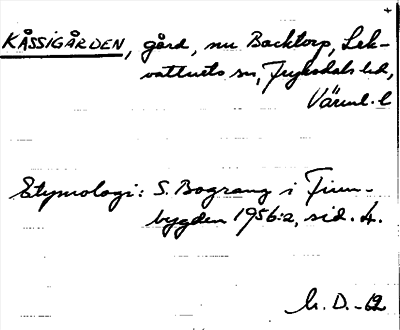 KÅSSIGÅRDEN, gård, nu Backtorp, Lek-
vattnets sn, Fryksdals hd,
Värml. l
Etymologi: S. Bograng i Finn-
bygden 1956:2, sid. 4.
D. -62